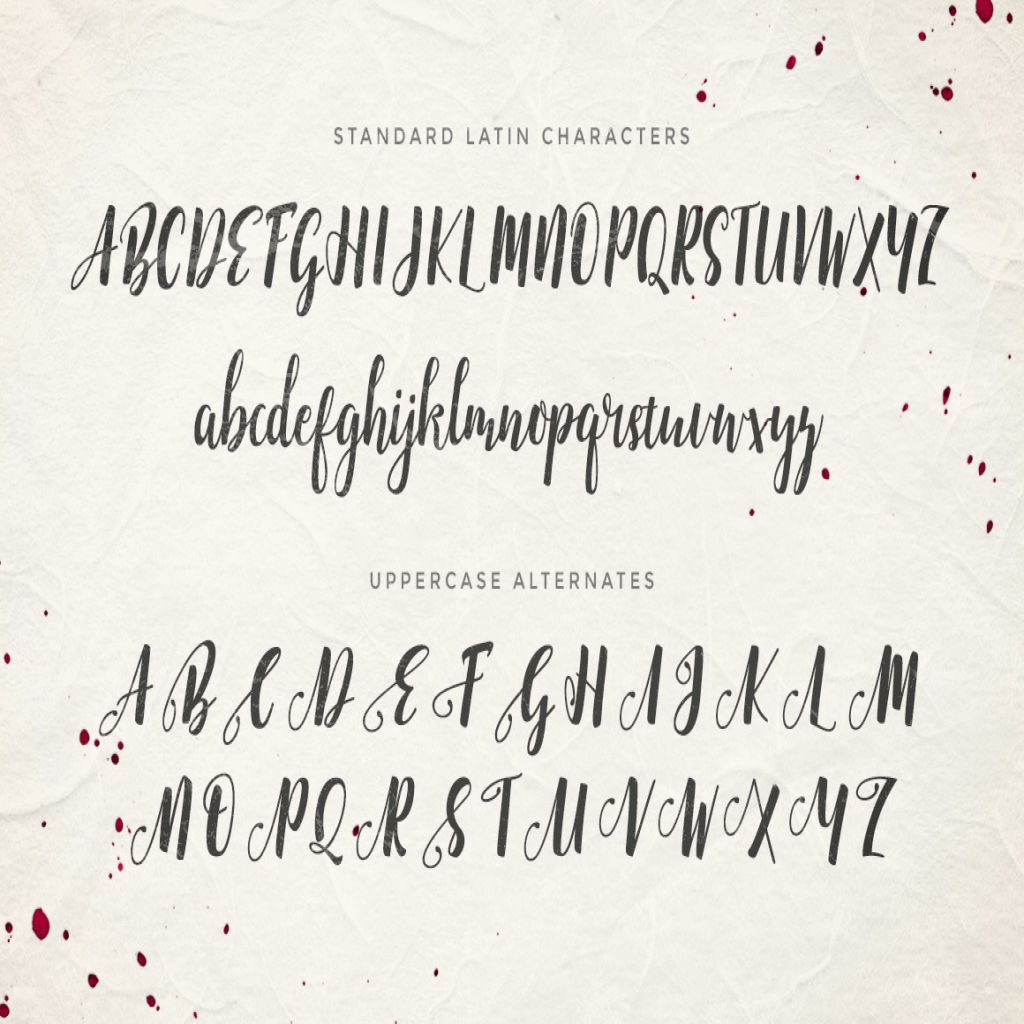 STANDARD LATIN CHARACTERS
ABCDEFGHIJKLMNOPQRSTUVWXYZ
abcdefghijklmnopqrstuvwxyz
UPPERCASE ALTERNATES
A B C D E F G H I J K L M
N O P Q R S T U V W X Y Z